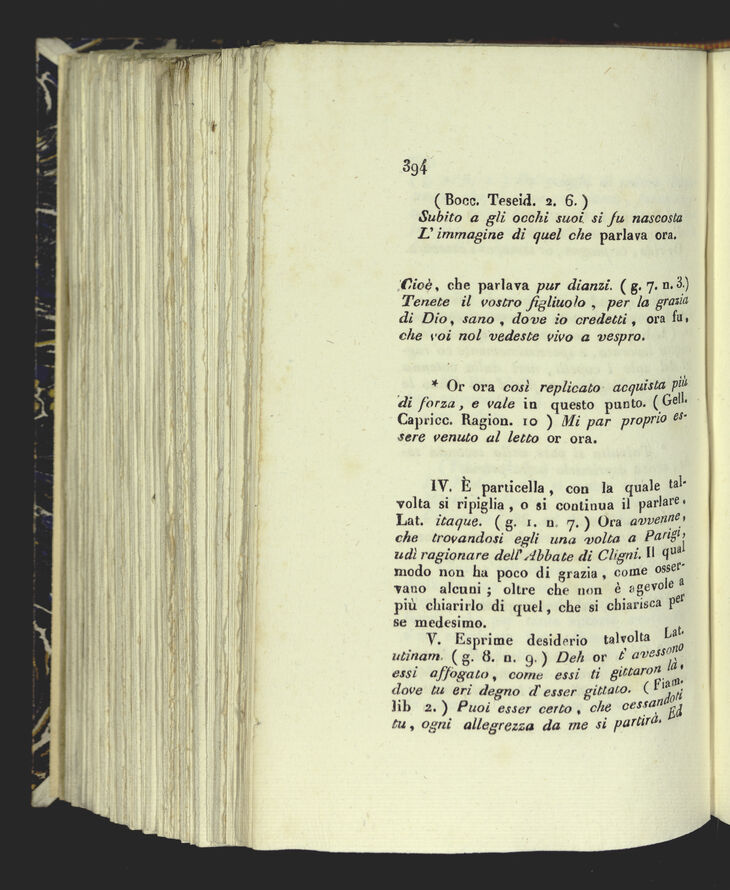 394
( Bocc. Teseid. 2. 6. )
Subito a gli occhi suoi si fu nascosta
L' immagine di quel che parlava ora.
Cioè, che parlava pur dianzi. ( g. 7. n. 3.)
Tenete il vostro figliuolo , per la grazia
di Dio, sano , dove io credetti , ora fu,
che voi nol vedeste vivo a vespro.
* Or ora così replicato acquista più
di forza, e vale in questo punto. ( Gell.
Capricc. Ragion. 10 ) Mi par proprio es-
sere venuto al letto or ora.
IV. È particella , con la quale tal-
volta si ripiglia , o si continua il parlare.
Lat. itaque. ( g. 1. n. 7. ) Ora avvenne,
che trovandosi egli una volta a Parigi,
udì ragionare dell' Abbate di Cligni. Il qual
modo non ha poco di grazia , come osser-
vano alcuni ; oltre che non è agevole a
più chiarirlo di quel, che si chiarisca per
se medesimo.
V. Esprime desiderio talvolta Lat.
utinam. ( g. 8. n. 9. ) Deh or t' avessono
essi affogato, come essi ti gittaron là,
dove tu eri degno d' esser gittato. ( Fiam.
lib 2. ) Puoi esser certo , che cessandoti
tu , ogni allegrezza da me si partirà. Ed